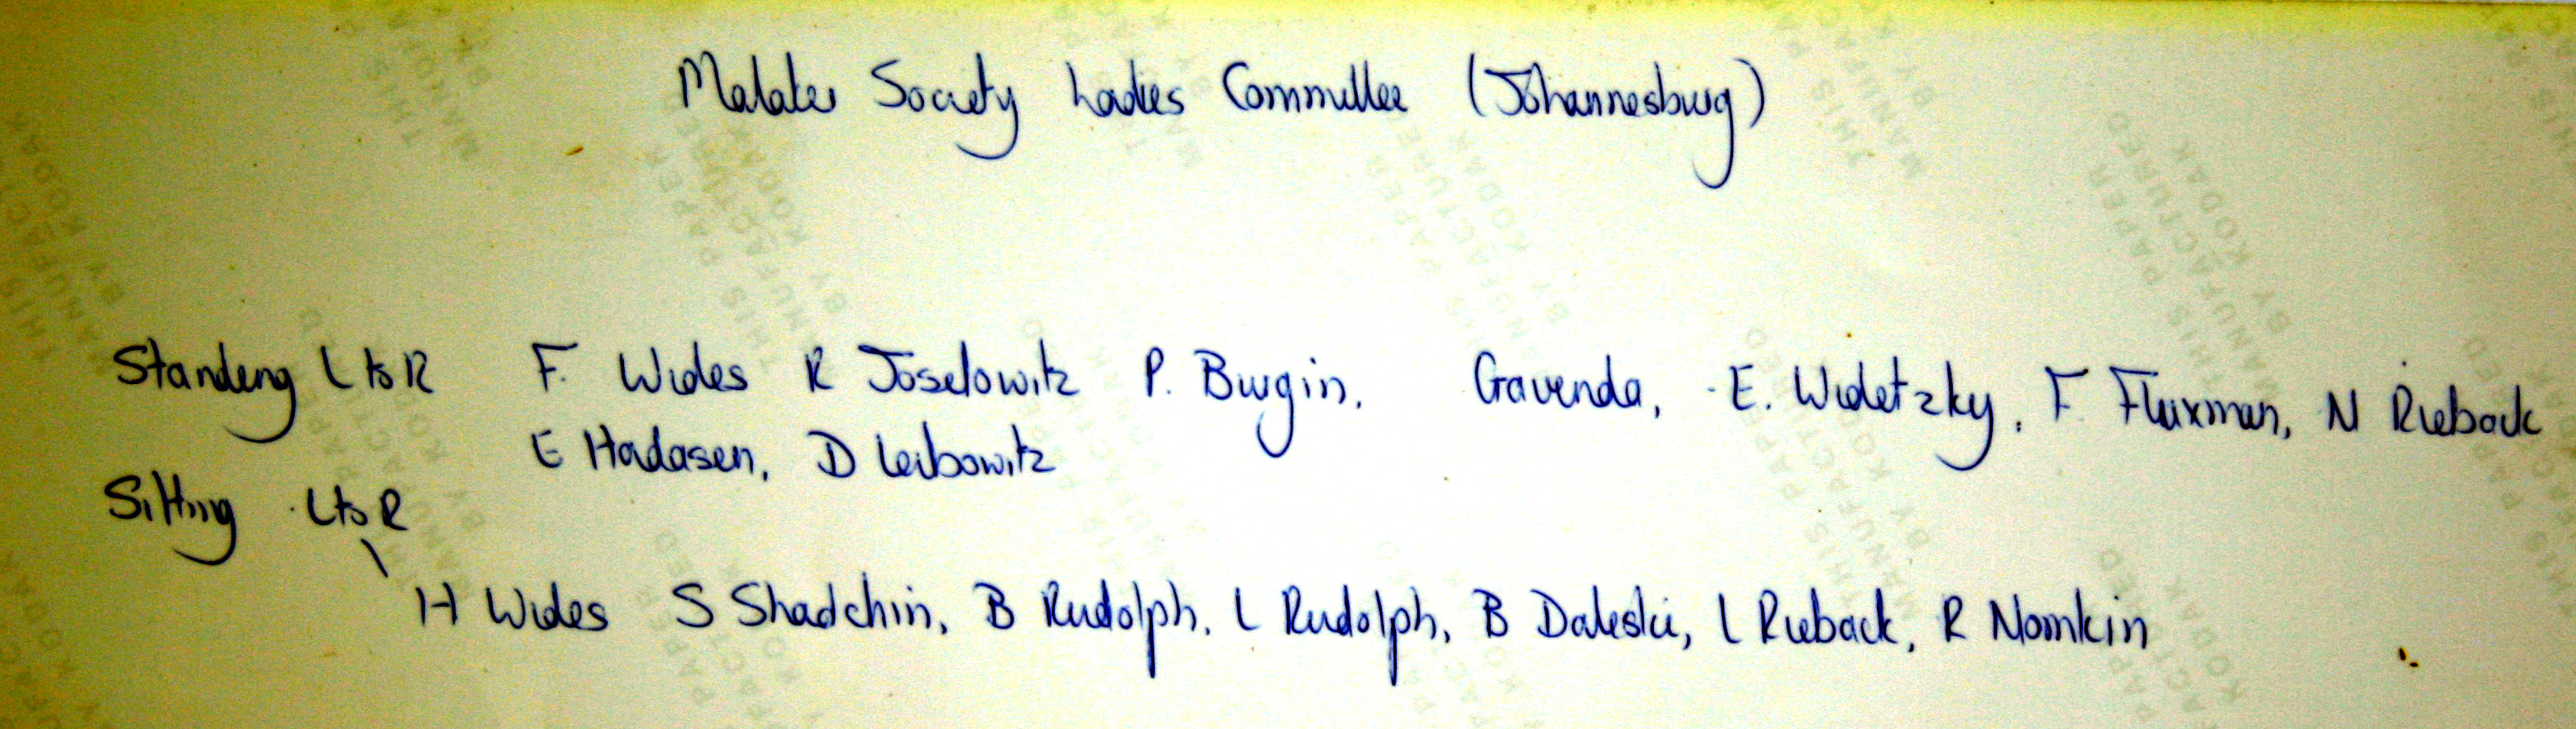 Malater Society Ladies Committee (Johannesburg)
Standing L to R F. Wides R Joselowitz P. Burgin, Gavenda, E. Widetzky, F. Fluxman, N Rieback
E Hadasen, D Leibowitz
Sitting L to R
H Wides S Shadchin, B Rudolph, L Rudolph, B Daleski, L Rieback, R Nomkin
THIS PAPER
MANUFACTURED
BY KODAK